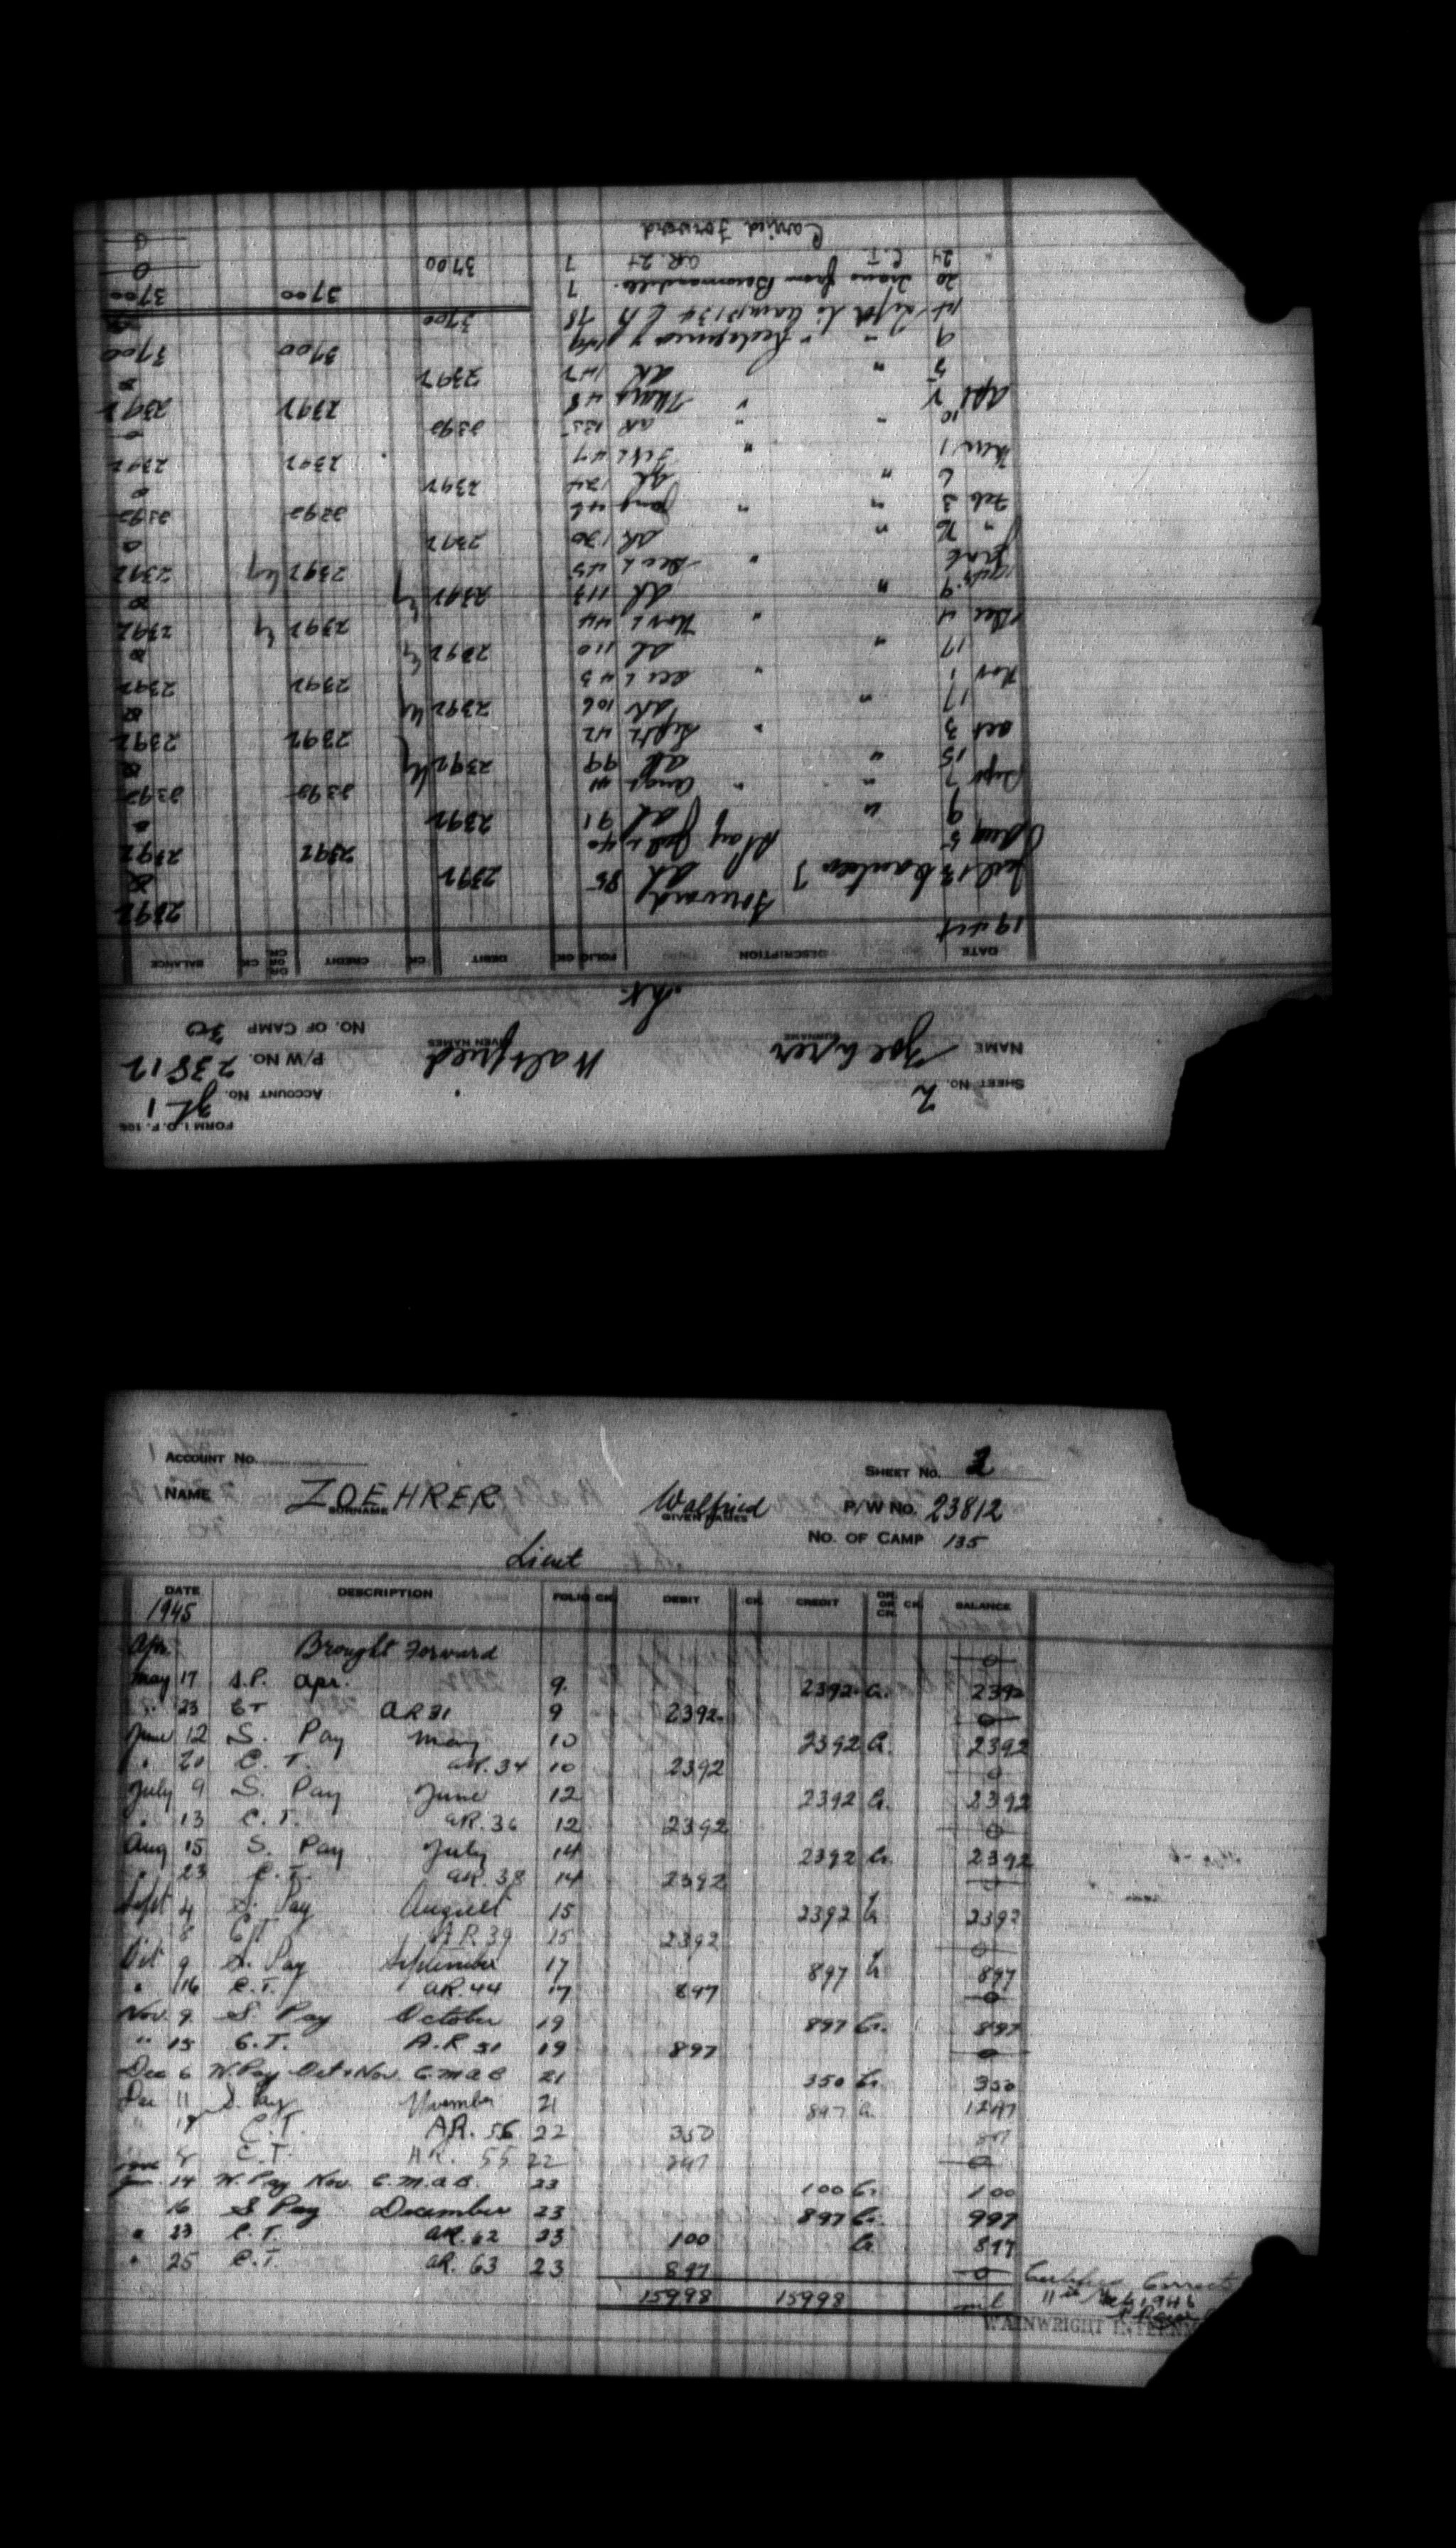 FORM I.O.F. 106
SHEET NO. 2 ACCOUNT NO.
NAME Zoehrer Walfried P/W NO. 23812
SURNAME GIVEN NAMES
NO. OF CAMP 30
Lt.
DATE DESCRIPTION FOLIO CK. DEBIT CK. CREDIT DR. OR CR. CK. BALANCE
Forward 2392
13 Canteen AR 85 2392 0
Aug 5 Pay July 40 2392 2392
9 " AR 91 2392 0
Sept 7 " " Aug 41 2392 2392
15 " AR 99 2392 0
Oct 3 " Sept 42 2392 2392
17 " AR 106 2392 0
Nov 1 " Oct 43 2392 2392
17 " AR 110 2392 0
Dec 4 " Nov 44 2392 2392
9 " AR 113 2392 0
" Dec 45 2392 2392
" " AR 120 2392 0
Feb 3 " " Jan 46 2392 2392
6 " AR 124 2392 0
Mar 1 " Feb 47 2392 2392
10 " " AR 135 2392 0
Apl " Mar 48 2392 2392
5 " AR 147 2392 0
9 " 3700 3700
Camp 134 78 3700
20 Trans from 7 3700 3700
24 C.T. AR. 24 7 3700 0
Carried Forward 0
ACCOUNT NO. SHEET NO. 2
NAME ZOEHRER Walfried P/W NO. 23812
SURNAME GIVEN NAMES
NO. OF CAMP 135
Lieut
DATE DESCRIPTION FOLIO CK. DEBIT CK. CREDIT DR. OR CR. CK. BALANCE
1945
Apr. Brought Forward 0
May 17 S.P. Apr. 9. 2392 Cr. 2392
" 23 CT AR 31 9 2392 0
June 12 S. Pay May 10 2392 Cr. 2392
" 20 C.T. AR. 34 10 2392 0
July 9 S. Pay June 12 2392 Cr. 2392
" 13 C.T. AR. 36 12 2392 0
Aug 15 S. Pay July 14 2392 Cr. 2392
" 23 C.T. AR. 38 14 2392 0
Sept 4 S. Pay August 15 2392 Cr 2392
8 CT AR 39 15 2392 0
Oct 9 S. Pay September 17 897 Cr 897
" 16 C.T. AR. 44 17 897 0
Nov. 9 S. Pay October 19 897 Cr. 897
" 15 C.T. A.R 51 19 897 0
Dec 6 W. Pay Oct + Nov. C.M.A.C 21 350 Cr. 350
Dec 11 S. Pay November 21 897 Cr. 1247
" C.T. AR. 56 22 350 897
C.T. AR. 55 22 0
14 W. Pay Nov. C.M.A.C. 23 100 Cr. 100
16 S Pay December 23 897 Cr. 997
" 23 C.T. AR. 62 23 100 Cr. 897
" 25 C.T. AR. 63 23 897 0
15998 15998 nil
Certified Correct
11th Feb 1946
WAINWRIGHT INTERN